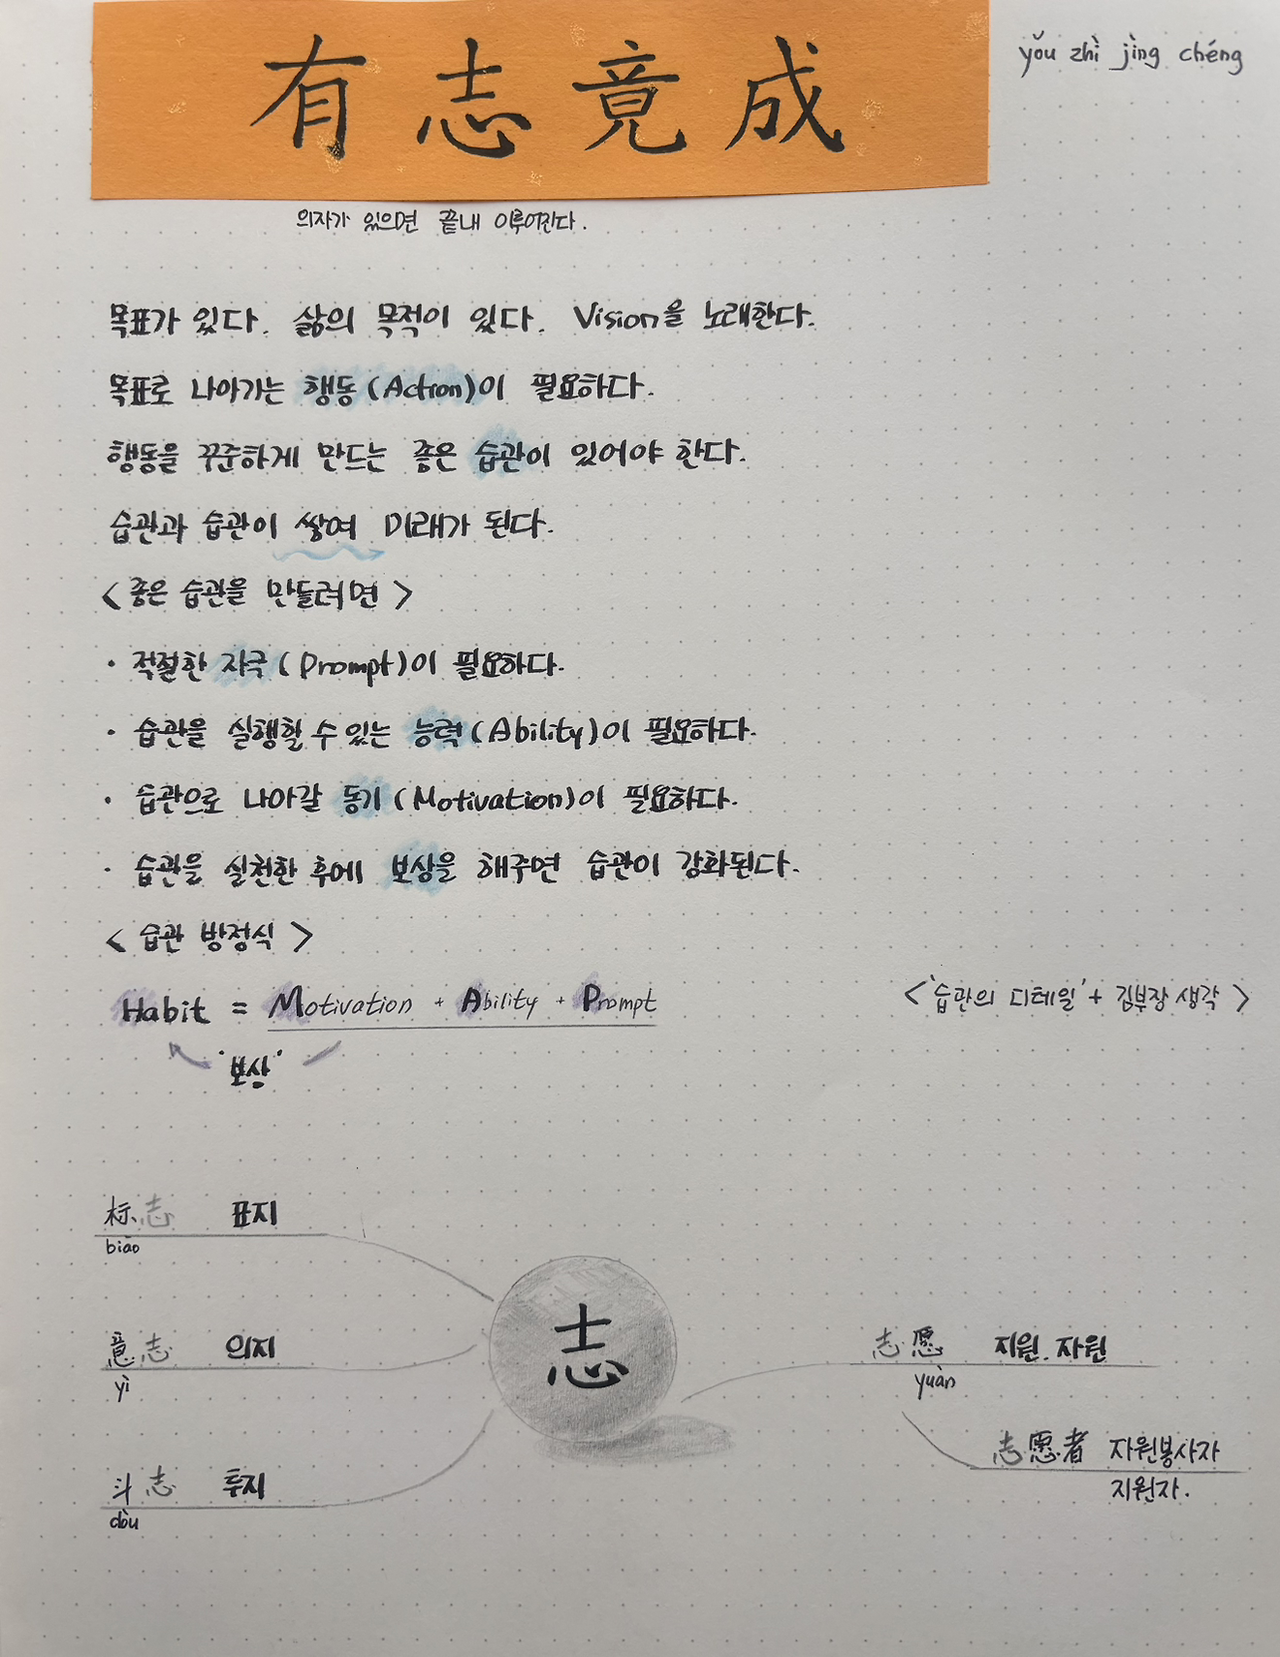 有志竟成
yǒu zhì jìng chéng
의지가 있으면 끝내 이루어진다.
목표가 있다. 삶의 목적이 있다. Vision을 노래한다.
목표로 나아가는 행동(Action)이 필요하다.
행동을 꾸준하게 만드는 좋은 습관이 있어야 한다.
습관과 습관이 쌓여 미래가 된다.
<좋은 습관을 만들려면>
· 적절한 자극(Prompt)이 필요하다.
· 습관을 실행할 수 있는 능력(Ability)이 필요하다.
· 습관으로 나아갈 동기(Motivation)이 필요하다.
· 습관을 실천한 후에 보상을 해주면 습관이 강화된다.
<습관 방정식>
Habit = Motivation + Ability + Prompt
'보상'
<'습관의 디테일' + 김부장 생각>
标志 표지
biāo
意志 의지
yì
斗志 투지
dòu
志
志愿 지원. 자원
yuàn
志愿者 자원봉사자
지원자.